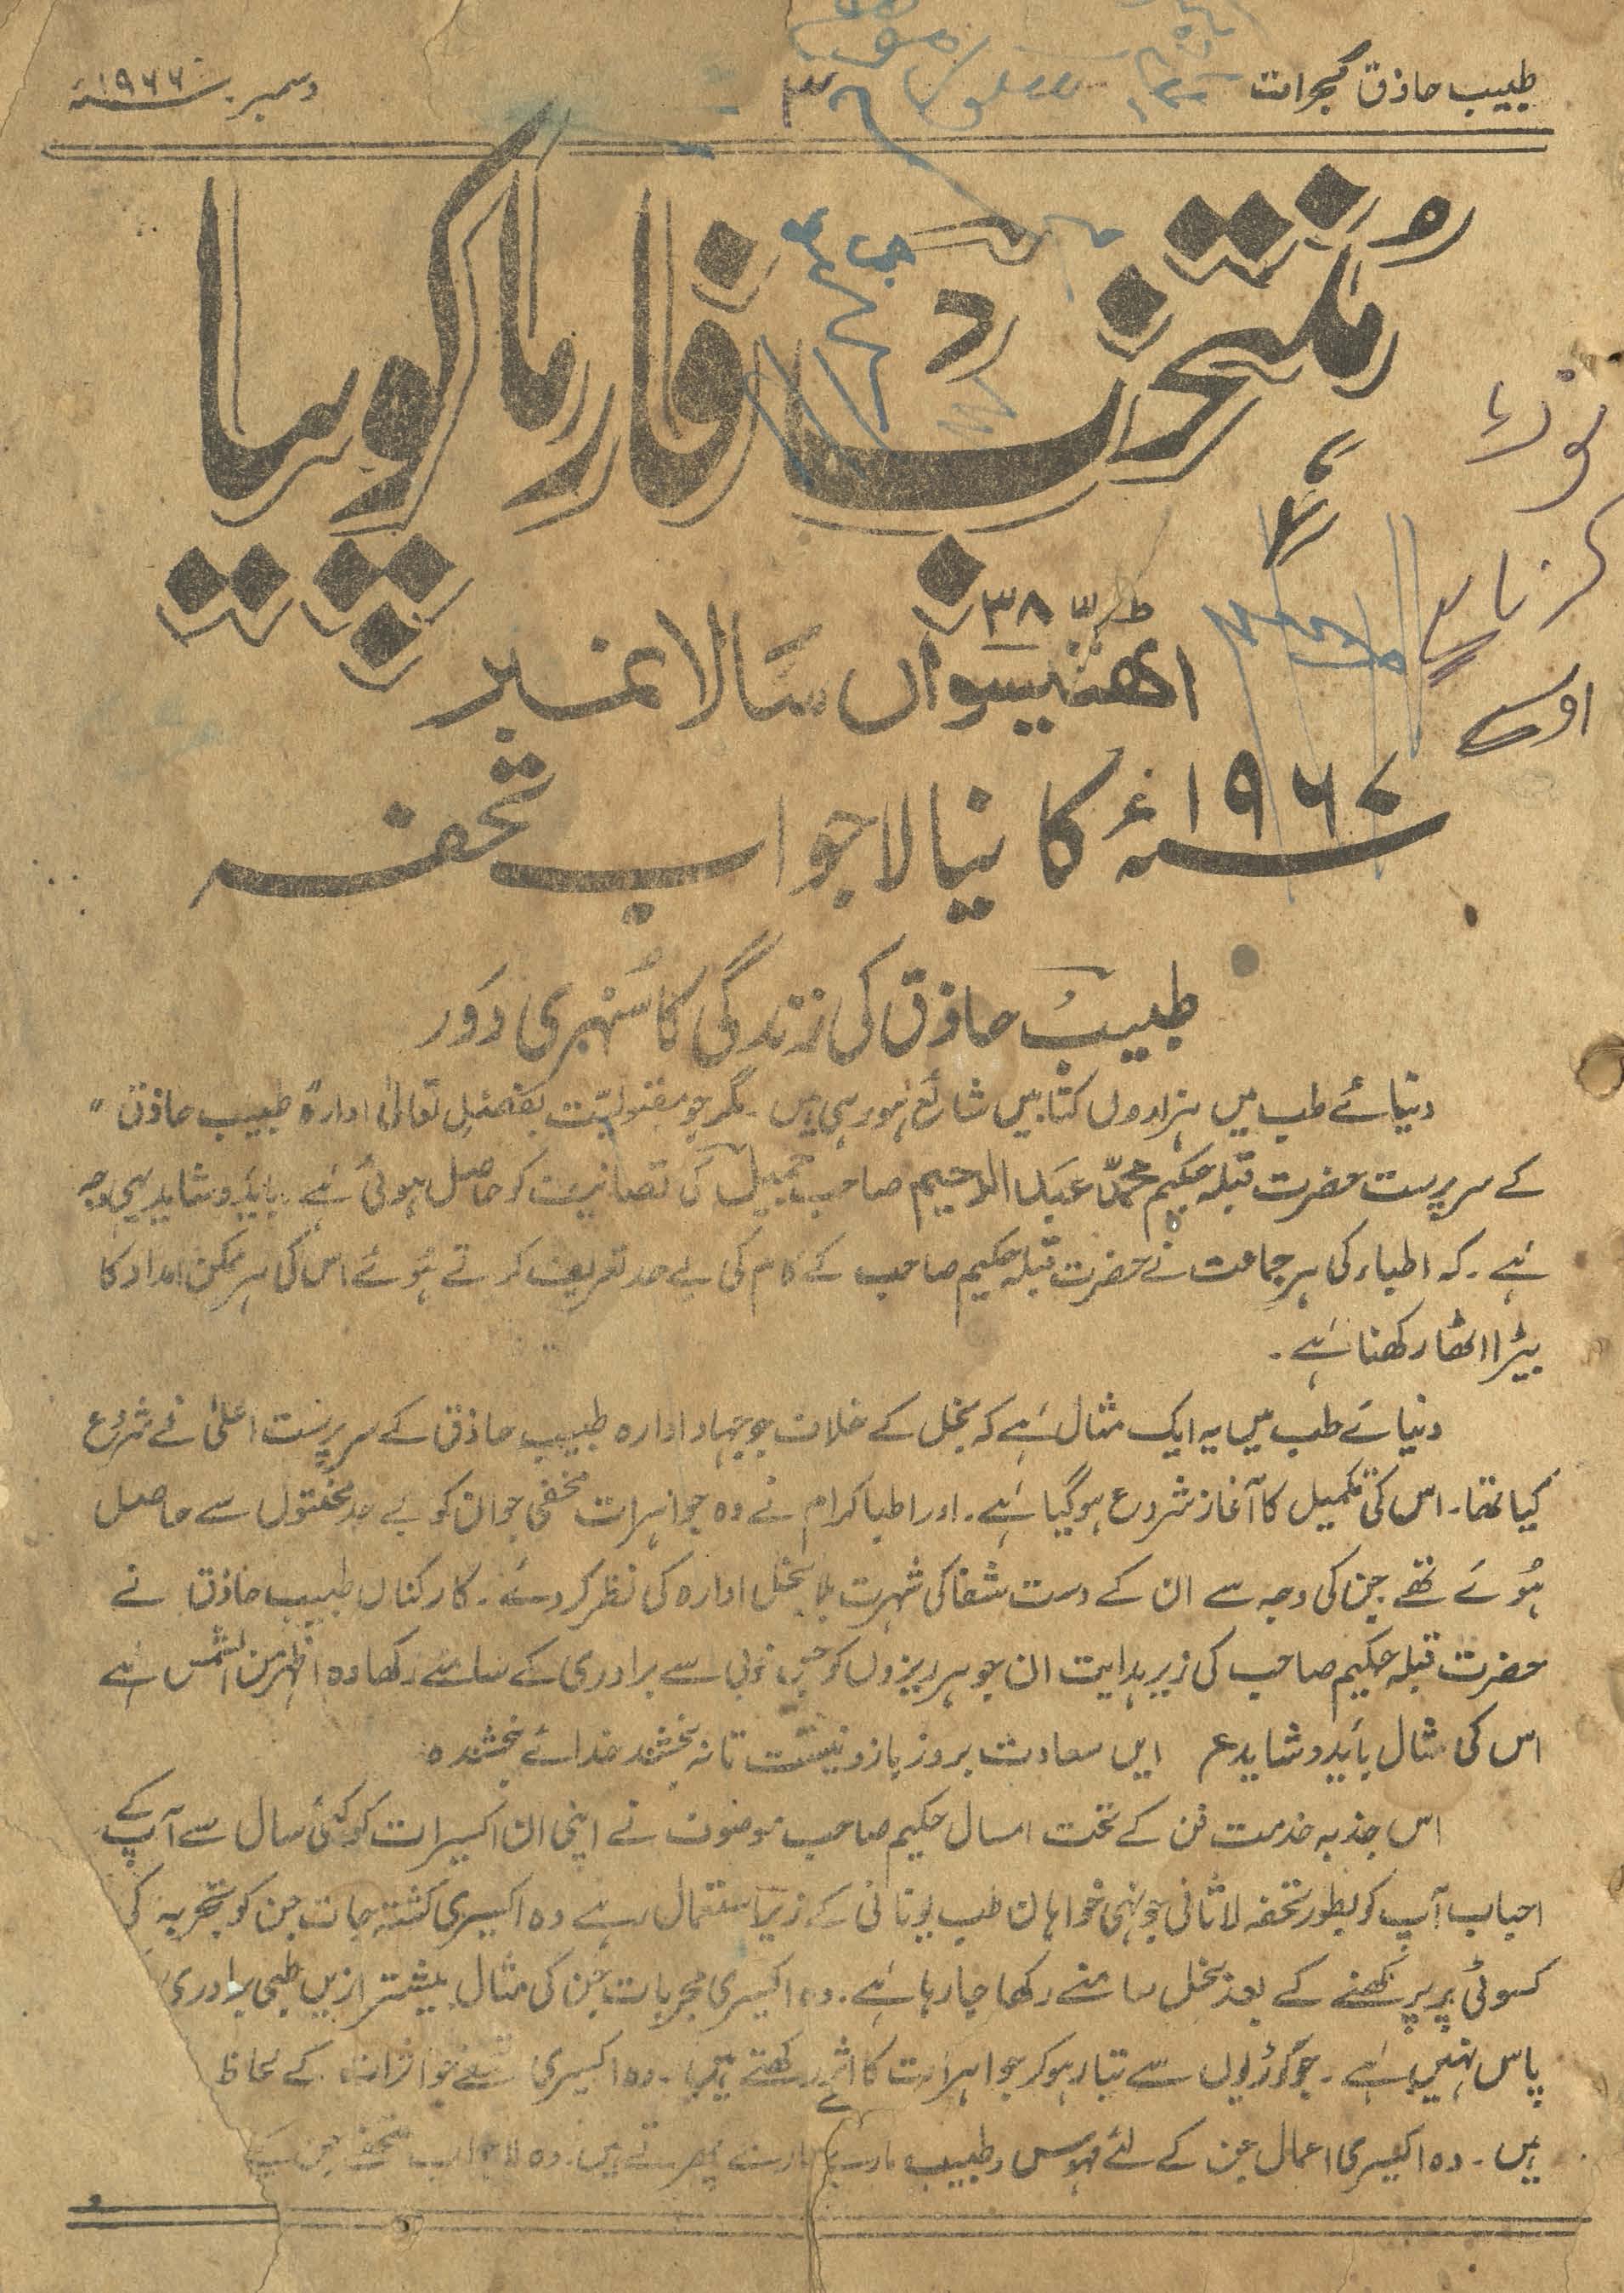 طبیب حاذق گجرات
۳
دسمبر ۱۹۶۶ء
منتخب فارماکوپیا
نمبر ۳۸
اٹھتیسواں سالانمبر
۱۹۶۷ء کا نیا لاجواب تحفہ
طبیب حاذق کی زندگی کا سُنہری دَور
دنیائے طب میں ہزاروں کتابیں شائع ہو رہی ہیں۔ مگر جو مقبولیّت بفضلِ تعالیٰ ادارۂ طبیب حاذق"
کے سرپرست حضرت قبلہ حکیم محمّد عبد الرحیم صاحب جمیل کی تصانیف کو حاصل ہوئی ہَے۔ بائید و شاید یہی وجہ
ہَے۔ کہ اطباء کی ہر جماعت نے حضرت قبلہ حکیم صاحب کے کام کی بے حد تعریف کرتے ہُوئے اس کی ہر ممکن امداد کا
بیڑا اٹھا رکھنا ہَے۔
دنیائے طب میں یہ ایک مثال ہَے کہ بخل کے خلاف جو جہاد ادارہ طبیب حاذق کے سرپرست اعلیٰ نے شروع
کیا تھا۔ اس کی تکمیل کا آغاز شروع ہو گیا ہَے۔ اور اطبا کرام نے وہ جواہرات مخفی جو ان کو بے حد محنتوں سے حاصل
ہُوئے تھے جن کی وجہ سے ان کے دست شفا کی شہرت بلا بخل ادارہ کی نظر کر دئے۔ کارکنان طبیب حاذق نے
حضرت قبلہ حکیم صاحب کی زیر ہدایت ان جوہر ریزوں کو جس خوبی سے برادری کے سامنے رکھا وہ اظہر من الشمس ہَے
اس کی مثال بائید و شاید ع ایں سعادت بروز بازو نیست تا نہ بخشد خدائے بخشندہ
اس جذبہ خدمت فن کے تحت امسال حکیم صاحب موصوف نے اپنی ان اکسیرات کو کئی سال سے آپ کے
احباب آپ کو بطور تحفہ لاثانی جو نہی خواہان طب یونانی کے زیر استعمال رہے وہ اکسیری کشتہ جات جن کو تجربہ کی
کسوٹی پر پرکھنے کے بعد بخل سامنے رکھا جا رہا ہَے۔ وہ اکسیری مجربات جن کی مثال بیشتر ازیں طبی برادری
پاس نہیں ہَے۔ جو کوڑیوں سے تیار ہو کر جواہرات کا اثر رکھتے ہیں۔ وہ اکسیری نسخے جو اثرات کے لحاظ
ہیں۔ وہ اکسیری اعمال جن کے لئے مہوس و طبیب مارے مارے پھرتے ہیں۔ وہ لاجواب تحفے جن کے